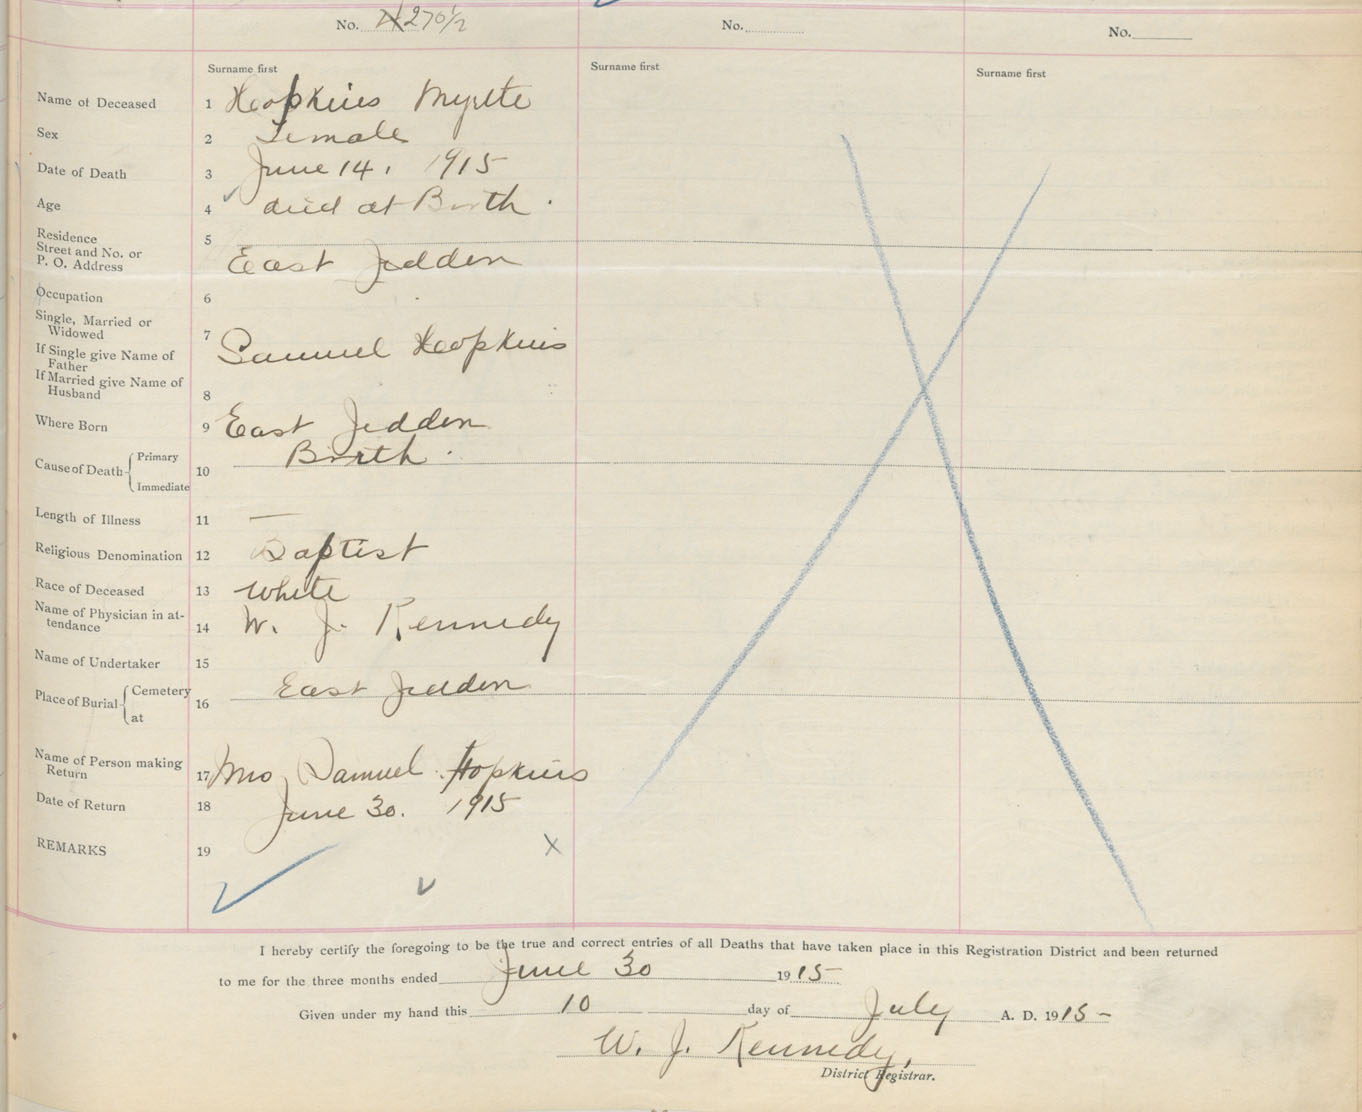 No. 270½ No. No.
Surname first Surname first Surname first
Name of Deceased 1 Hopkins Myrtle
Sex 2 Female
Date of Death 3 June 14. 1915
Age 4 died at Birth.
Residence 5
Street and No. or
P. O. Address East Jeddon
Occupation 6
Single, Married or
Widowed 7
If Single give Name of
Father Samuel Hopkins
If Married give Name of
Husband 8
Where Born 9 East Jeddon
Cause of Death Primary 10 Birth.
Immediate
Length of Illness 11 —
Religious Denomination 12 Baptist
Race of Deceased 13 White
Name of Physician in at-
tendance 14 W. J. Kennedy
Name of Undertaker 15
Place of Burial Cemetery 16 East Jeddon
at
Name of Person making
Return 17 Mrs Samuel Hopkins
Date of Return 18 June 30. 1915
REMARKS 19 x
I hereby certify the foregoing to be the true and correct entries of all Deaths that have taken place in this Registration District and been returned
to me for the three months ended June 30 1915
Given under my hand this 10 day of July A. D. 1915 –
W. J. Kennedy,
District Registrar.